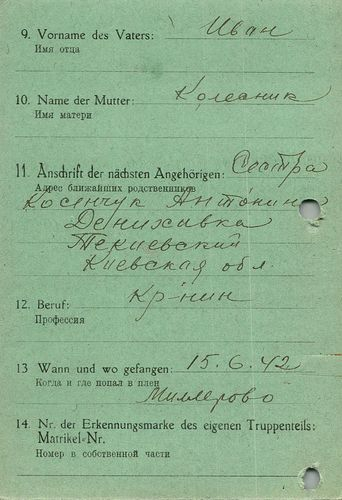 9. Vorname des Vaters: Иван
Имя отца
10. Name der Mutter: Колесник
Имя матери
11. Anschrift der nächsten Angehörigen: Сестра
Адрес ближайших родственников
Косенчук Антонина
Денихивка
Текиевский
Киевская обл.
12. Beruf: кр-нин
Профессия
13 Wann und wo gefangen: 15.6.42
Когда и где попал в плен
Миллерово
14. Nr. der Erkennungsmarke des eigenen Truppenteils:
Matrikel-Nr.
Номер в собственной части